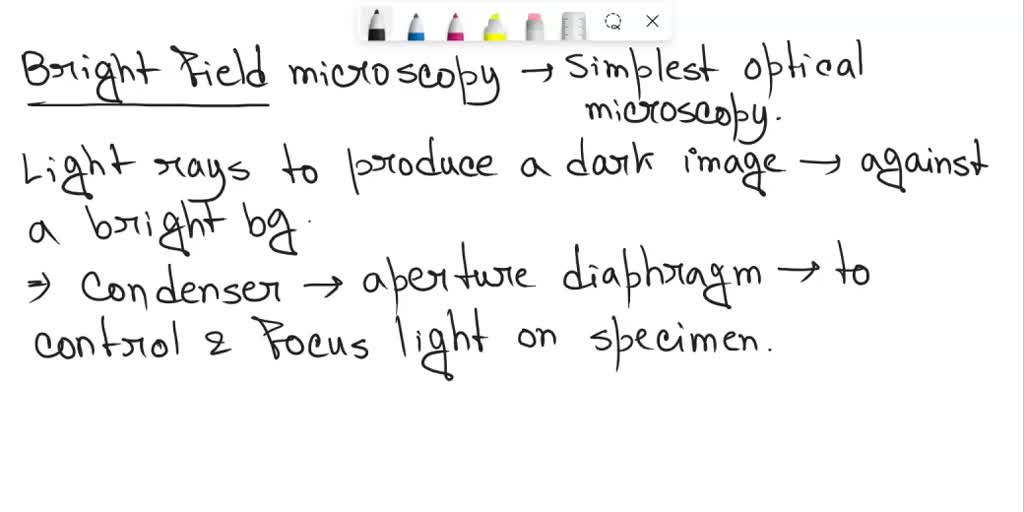 Bright Field microscopy → Simplest optical
microscopy.
Light rays to produce a dark image → against
a bright bg.
⇒ Condenser → aperture diaphragm → to
control & Focus light on specimen.